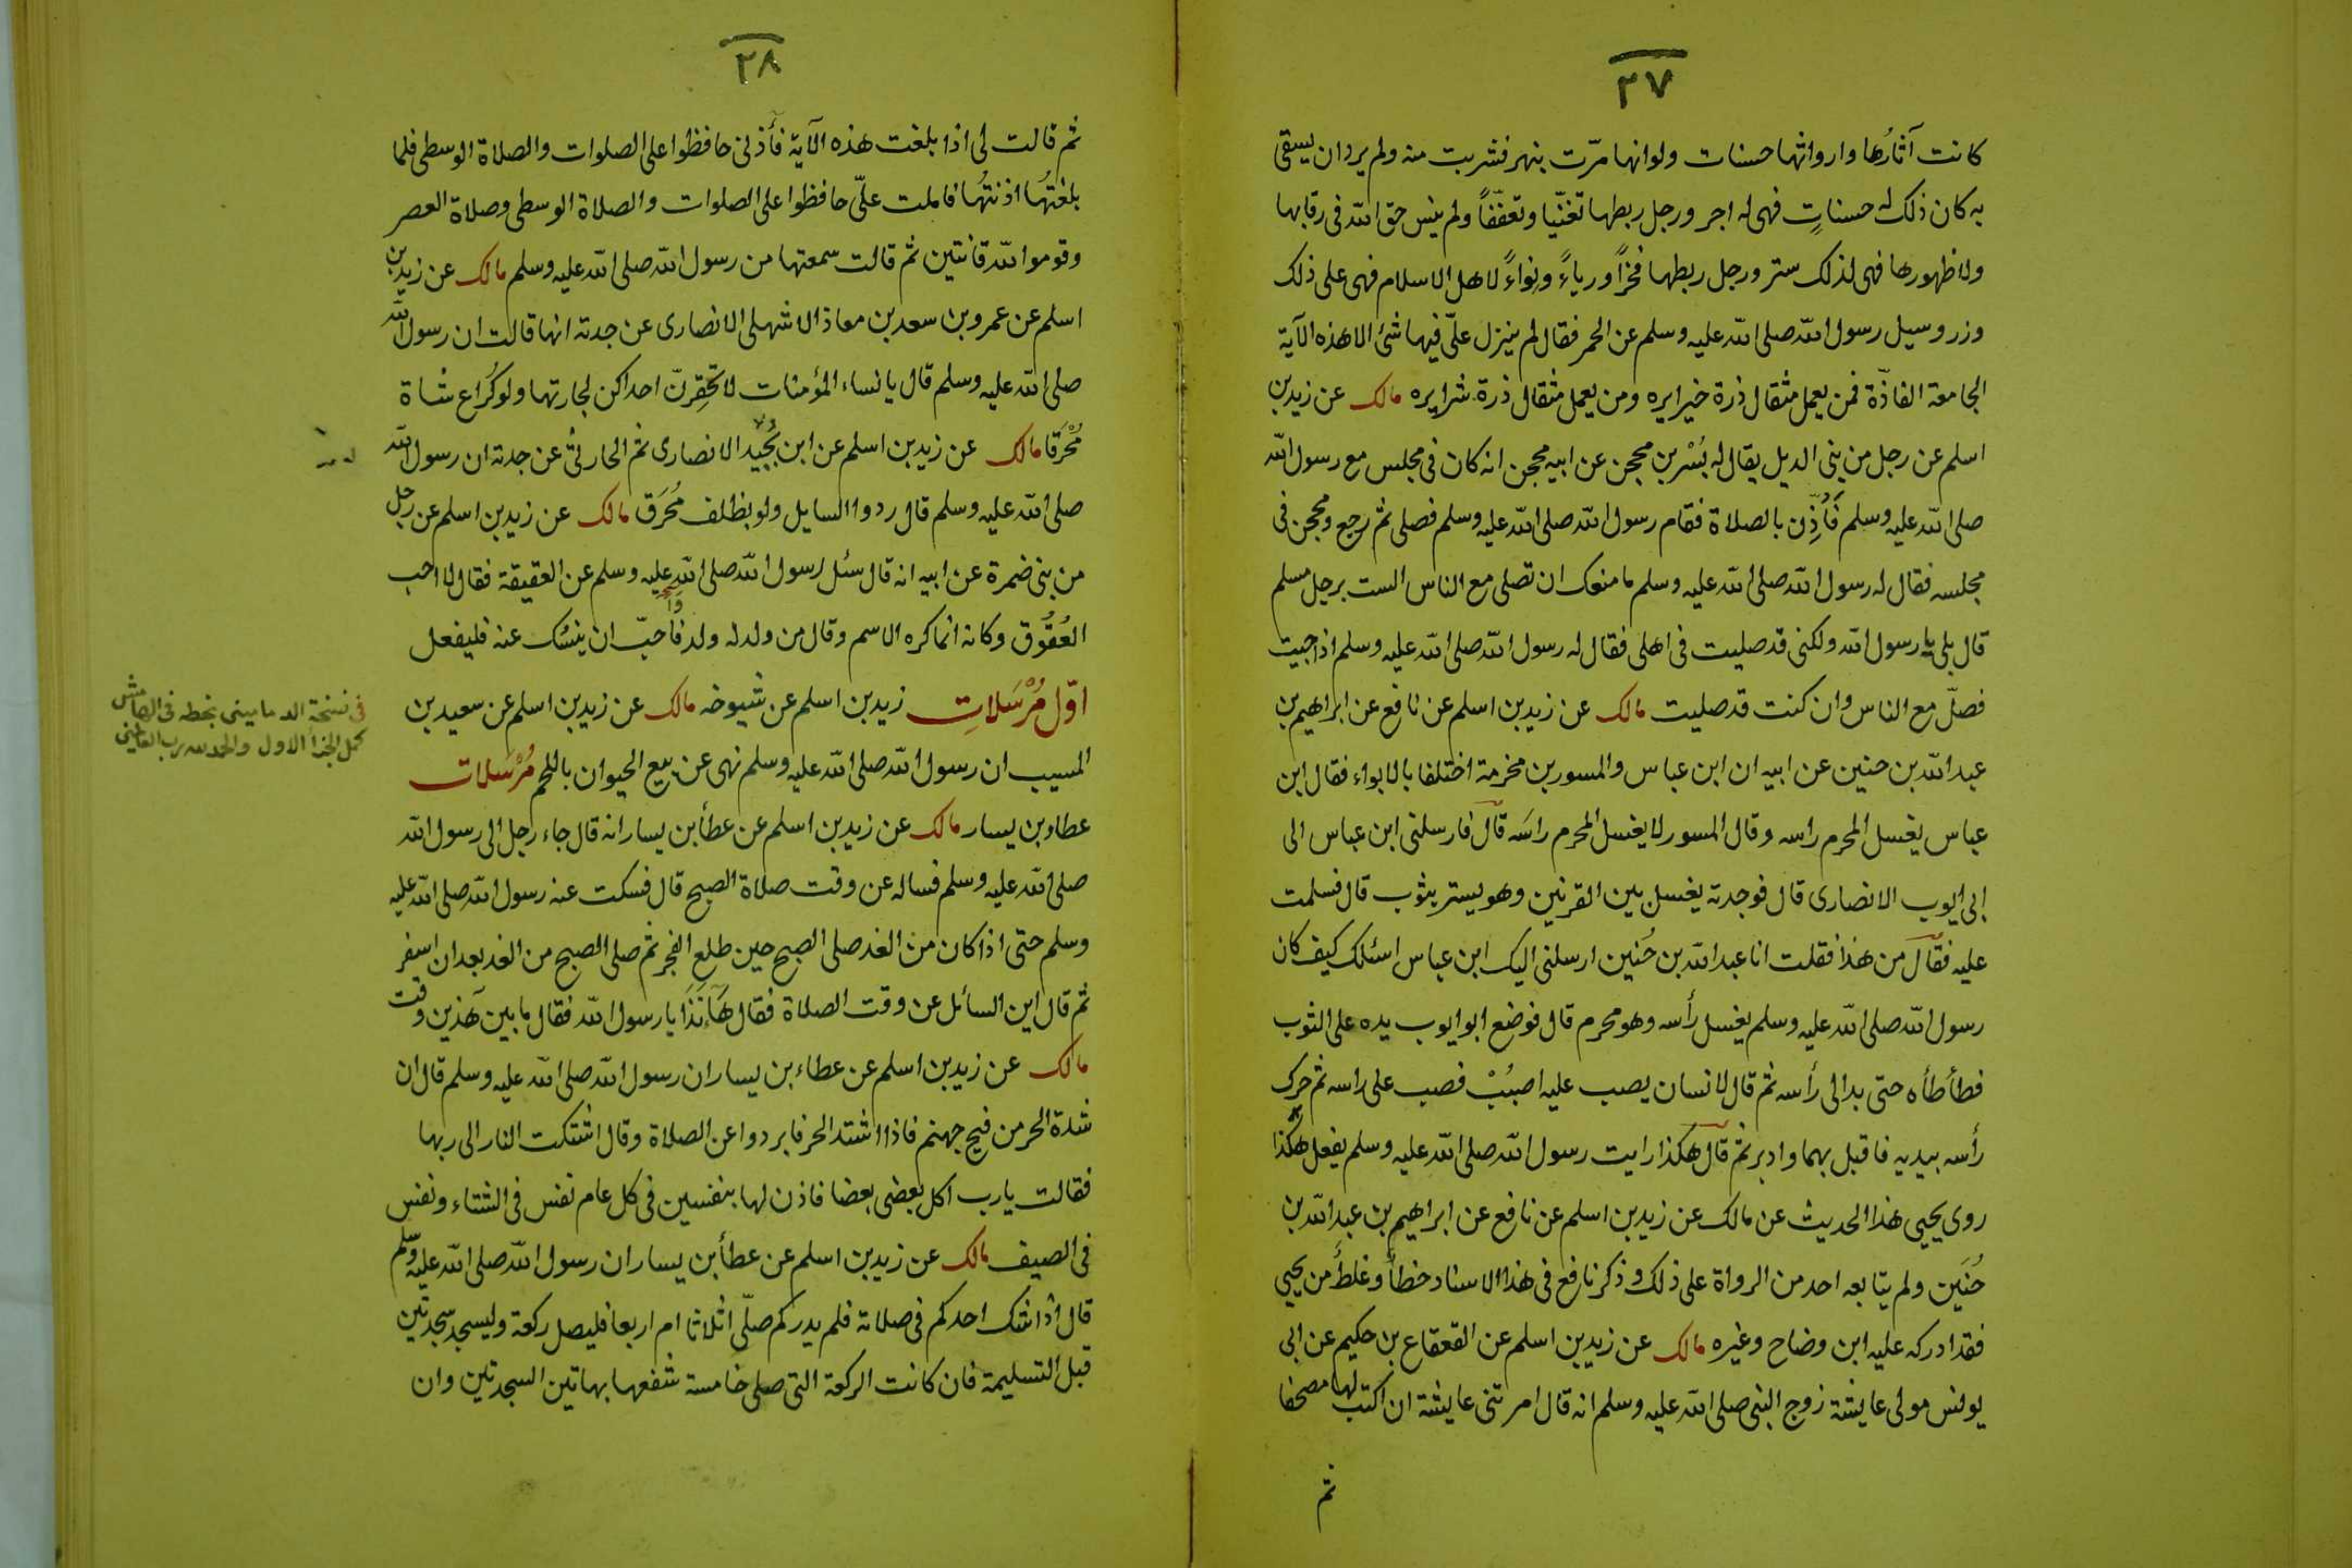 ٣٧
كانت آثارُها وارواثها حسنات ولو انها مرّت بنهر فشربت منه ولم يرد ان يسقى
به كان ذلك له حسناتٍ فهى له اجر ورجل ربطها تغنّيا وتعففّاً ولم ينس حق الله فى رقابها
ولا ظهورها فهى لذلك ستر ورجل ربطها فخراً ورياءً ونواءً لاهل الاسلام فهى على ذلك
وزر وسيل رسول الله صلى الله عليه وسلم عن الحمر فقال لم ينزل علىّ فيها شئ الا هذه الآية
الجامعة الفاذّة فمن يعمل مثقال ذرة خيرا يره ومن يعمل مثقال ذرة شرا يره مالك عن زيد بن
اسلم عن رجل من بنى الديل يقال له بُسْر بن محجن عن ابيه محجن انه كان فى مجلس مع رسول الله
صلى الله عليه وسلم فَأُذِّن بالصلاة فقام رسول الله صلى الله عليه وسلم فصلى ثم رجع ومحجن فى
مجلسه فقال له رسول الله صلى الله عليه وسلم ما منعك ان تصلى مع الناس الست برجل مسلم
قال بلى يا رسول الله ولكنى قد صليت فى اهلى فقال له رسول الله صلى الله عليه وسلم اذا جيت
فصلّ مع الناس وان كنت قد صليت مالك عن زيد بن اسلم عن نافع عن ابراهيم بن
عبد الله بن حنين عن ابيه ان ابن عباس والمسور بن مخرمة اختلفا بالابواء فقال ابن
عباس يغسل المحرم راسه وقال المسور لا يغسل المحرم راسَه قال فارسلنى ابن عباس الى
ابى ايوب الانصارى قال فوجدته يغسل بين القرنين وهو يستر بثوب قال فسلمت
عليه فقال من هذا فقلت انا عبد الله بن حُنين ارسلنى اليك ابن عباس اسئلك كيف كان
رسول الله صلى الله عليه وسلم يغسل رأسه وهو محرم قال فوضع ابو ايوب يده على الثوب
فطأطأه حتى بدا لى رأسه ثم قال لانسان يصب عليه اصبُبْ فصب على راسه ثم حرك
رأسه بيديه فاقبل بهما وادبر ثم قال هكذا رايت رسول الله صلى الله عليه وسلم يفعل هكذا
روى يحيى هذا الحديث عن مالك عن زيد بن اسلم عن نافع عن ابراهيم بن عبد الله بن
حُنَين ولم يتابعه احد من الرواة على ذلك وذكر نافع فى هذا الاسناد خطأ وغلطٌ من يحيى
فقد ادركه عليه ابن وضاح وغيره مالك عن زيد بن اسلم عن القعقاع بن حكيم عن ابى
يونس مولى عايشة زوج النبى صلى الله عليه وسلم انه قال امرتنى عايشة ان اكتب لها مصحفا
ثم
٣٨
ثم قالت لى اذا بلغت هذه الآية فآذنى حافظوا على الصلوات والصلاة الوسطى فلما
بلغتُها اذنتُها فاملت علىّ حافظوا على الصلوات والصلاة الوسطى وصلاة العصر
وقوموا لله قانتين ثم قالت سمعتها من رسول الله صلى الله عليه وسلم مالك عن زيد بن
اسلم عن عمرو بن سعد بن معاذ الاشهلى الانصارى عن جدته انها قالت ان رسول الله
صلى الله عليه وسلم قال يا نساء المؤمنات لا تحقِرنّ احداكن لجارتها ولو كُراع شاة
مُحْرَقا مالك عن زيد بن اسلم عن ابن بُجَيْد الانصارى ثم الحارثى عن جدته ان رسول الله
صلى الله عليه وسلم قال ردوا السايل ولو بظلف مُحْرَق مالك عن زيد بن اسلم عن رجل
من بنى ضمرة عن ابيه انه قال سئل رسول الله صلى الله عليه وسلم عن العقيقة فقال لا احب
العُقُوق وكانه انما كره الاسم وقال من ولد له ولد فاحبّ ان ينسُك عنه فليفعل
اوّل مُرْسَلاتِ زيد بن اسلم عن شيوخه مالك عن زيد بن اسلم عن سعيد بن
المسيب ان رسول الله صلى الله عليه وسلم نهى عن بيع الحيوان باللحم مُرْسَلات
عطاء بن يسار مالك عن زيد بن اسلم عن عطأ بن يسار انه قال جاء رجل الى رسول الله
صلى الله عليه وسلم فساله عن وقت صلاة الصبح قال فسكت عنه رسول الله صلى الله عليه
وسلم حتى اذا كان من الغد صلى الصبح حين طلع الفجر ثم صلى الصبح من الغد بعد ان اسفر
ثم قال اين السائل عن وقت الصلاة فقال هَآنَذَا يا رسول الله فقال ما بين هذين وقت
مالك عن زيد بن اسلم عن عطاء بن يسار ان رسول الله صلى الله عليه وسلم قال ان
شدة الحر من فيح جهنم فاذا اشتد الحر فابردوا عن الصلاة وقال اشتكت النار الى ربها
فقالت يا رب اكل بعضى بعضا فاذن لها بنفسين فى كل عام نفس فى الشتاء ونفس
فى الصيف مالك عن زيد بن اسلم عن عطأ بن يسار ان رسول الله صلى الله عليه وسلم
قال اذا شك احدكم فى صلاته فلم يدر كم صلّى اثلاثا ام اربعا فليصل ركعة وليسجد سجدتين
قبل التسليمة فان كانت الركعة التى صلى خامسة شفعها بهاتين السجدتين وان
فى نسخة الدمامينى بخطه فى الهامش
كمل الجزأ الاول والحمد لله رب العالمين